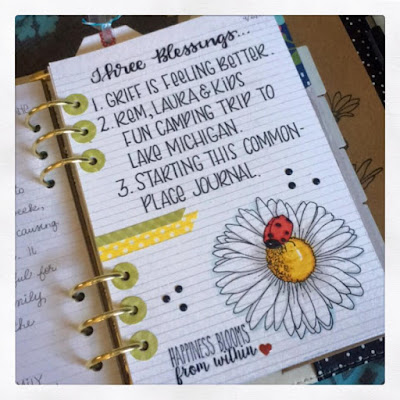 Three Blessings...
1. GRIFF IS FEELING BETTER.
2. REM, LAURA & KIDS
FUN CAMPING TRIP TO
LAKE MICHIGAN.
3. STARTING THIS COMMON-
PLACE JOURNAL.
HAPPINESS BLOOMS
from within
week,
causing
for
family,
the